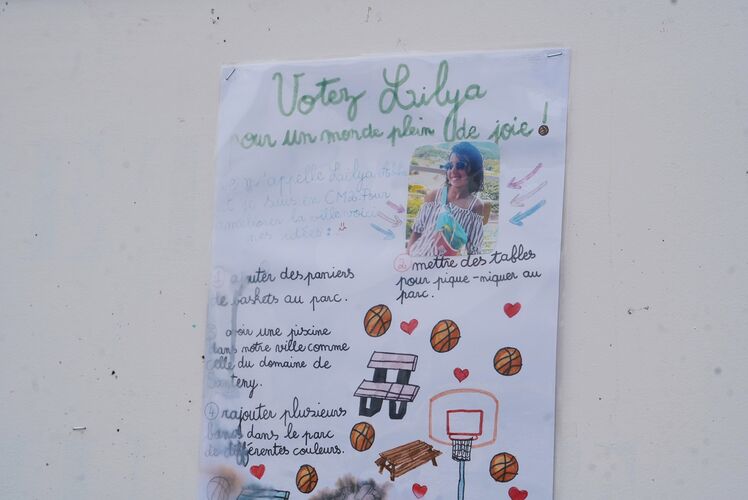 Votez Lailya
pour un monde plein de joie !
m'appelle Lailya
je suis en CM2. Pour
améliorer la ville voici
mes idées :
1 ajouter des paniers
de baskets au parc.
2 mettre des tables
pour pique-niquer au
parc.
3 avoir une piscine
dans notre ville comme
celle du domaine de
Santeny.
4 rajouter plusieurs
bancs dans le parc
de différentes couleurs.